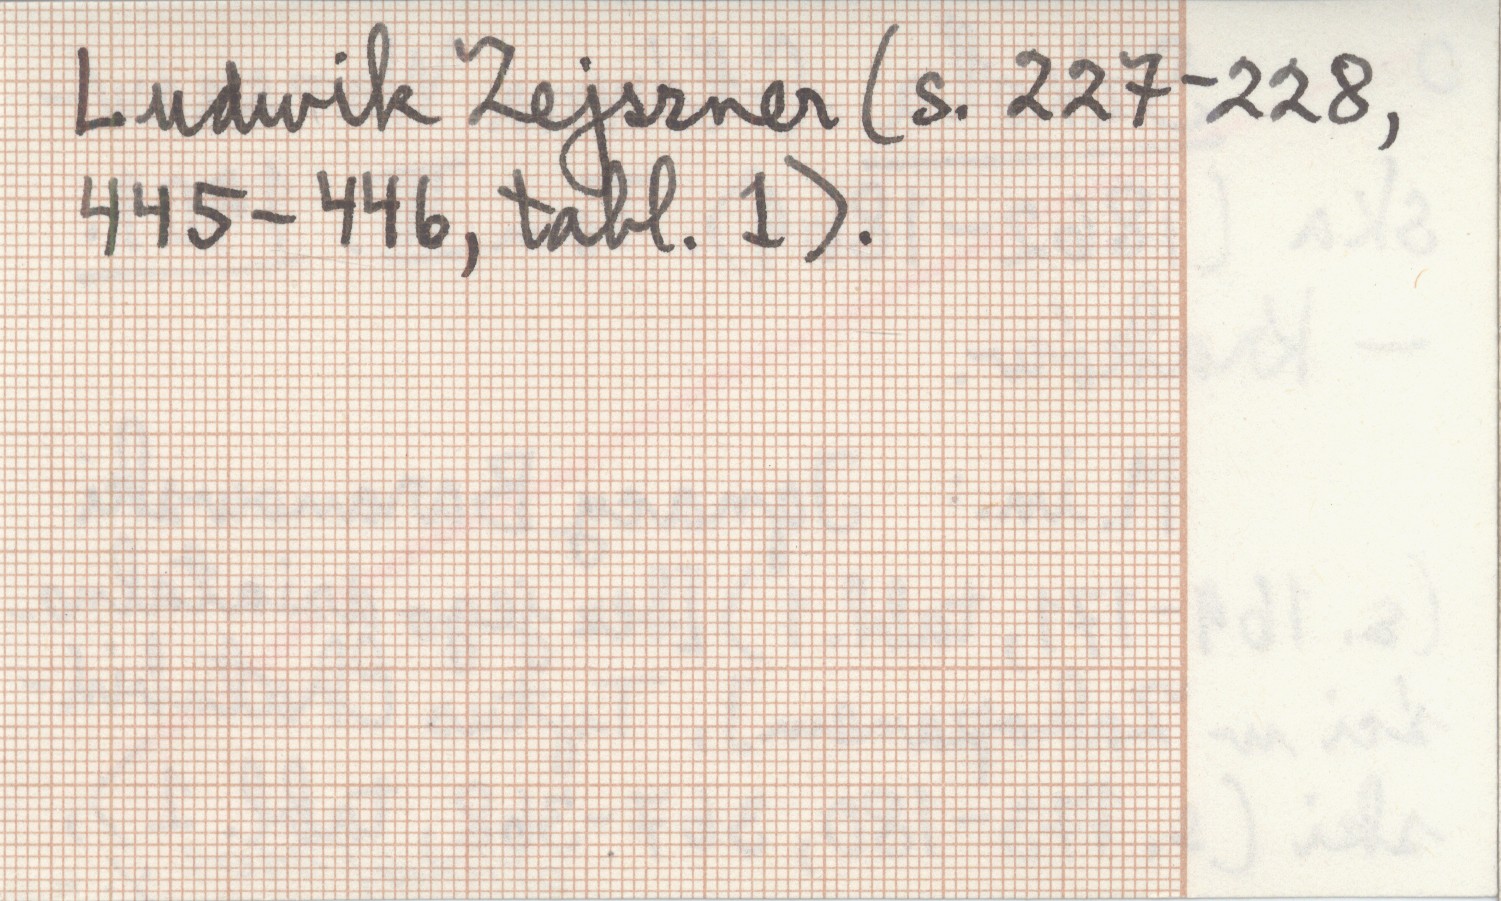 Ludwik Zejszner (s. 227-228,
445-446, tabl. 1).